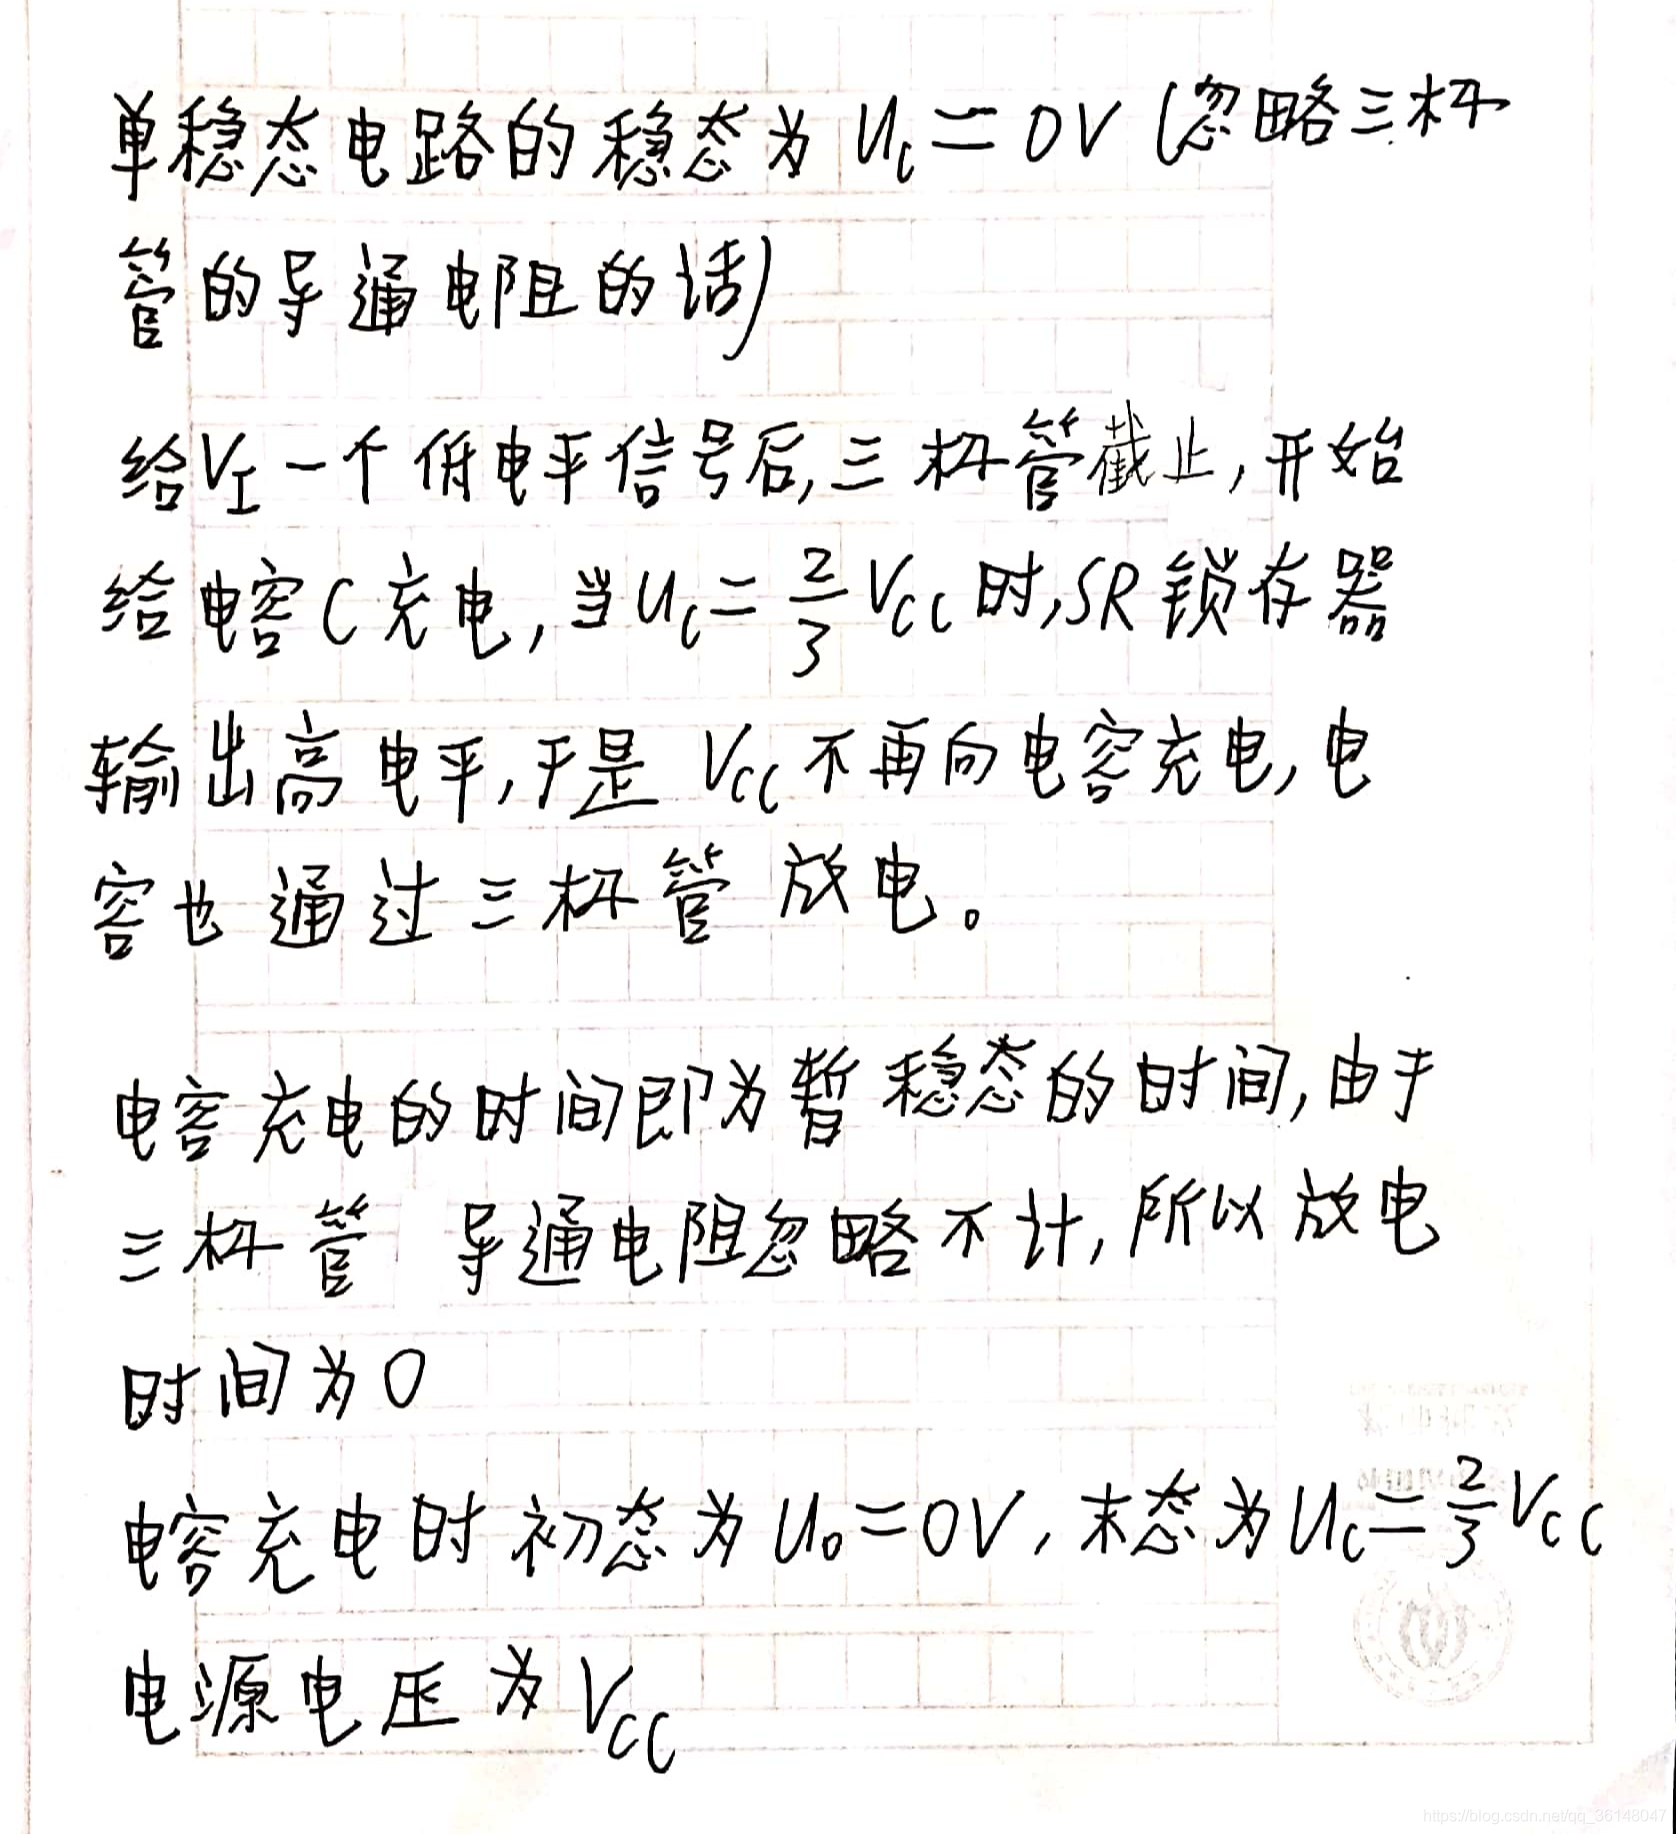 单稳态电路的稳态为 U_c = 0V (忽略三极
管的导通电阻的话)
给V_I一个低电平信号后,三极管截止,开始
给电容C充电,当U_c = 2/3 V_CC时,SR锁存器
输出高电平,于是 V_CC不再向电容充电,电
容也通过三极管放电。
电容充电的时间即为暂稳态的时间,由于
三极管 导通电阻忽略不计,所以放电
时间为0
电容充电时初态为U_0=0V,末态为U_C=2/3 V_CC
电源电压为V_CC
https://blog.csdn.net/qq_36148047